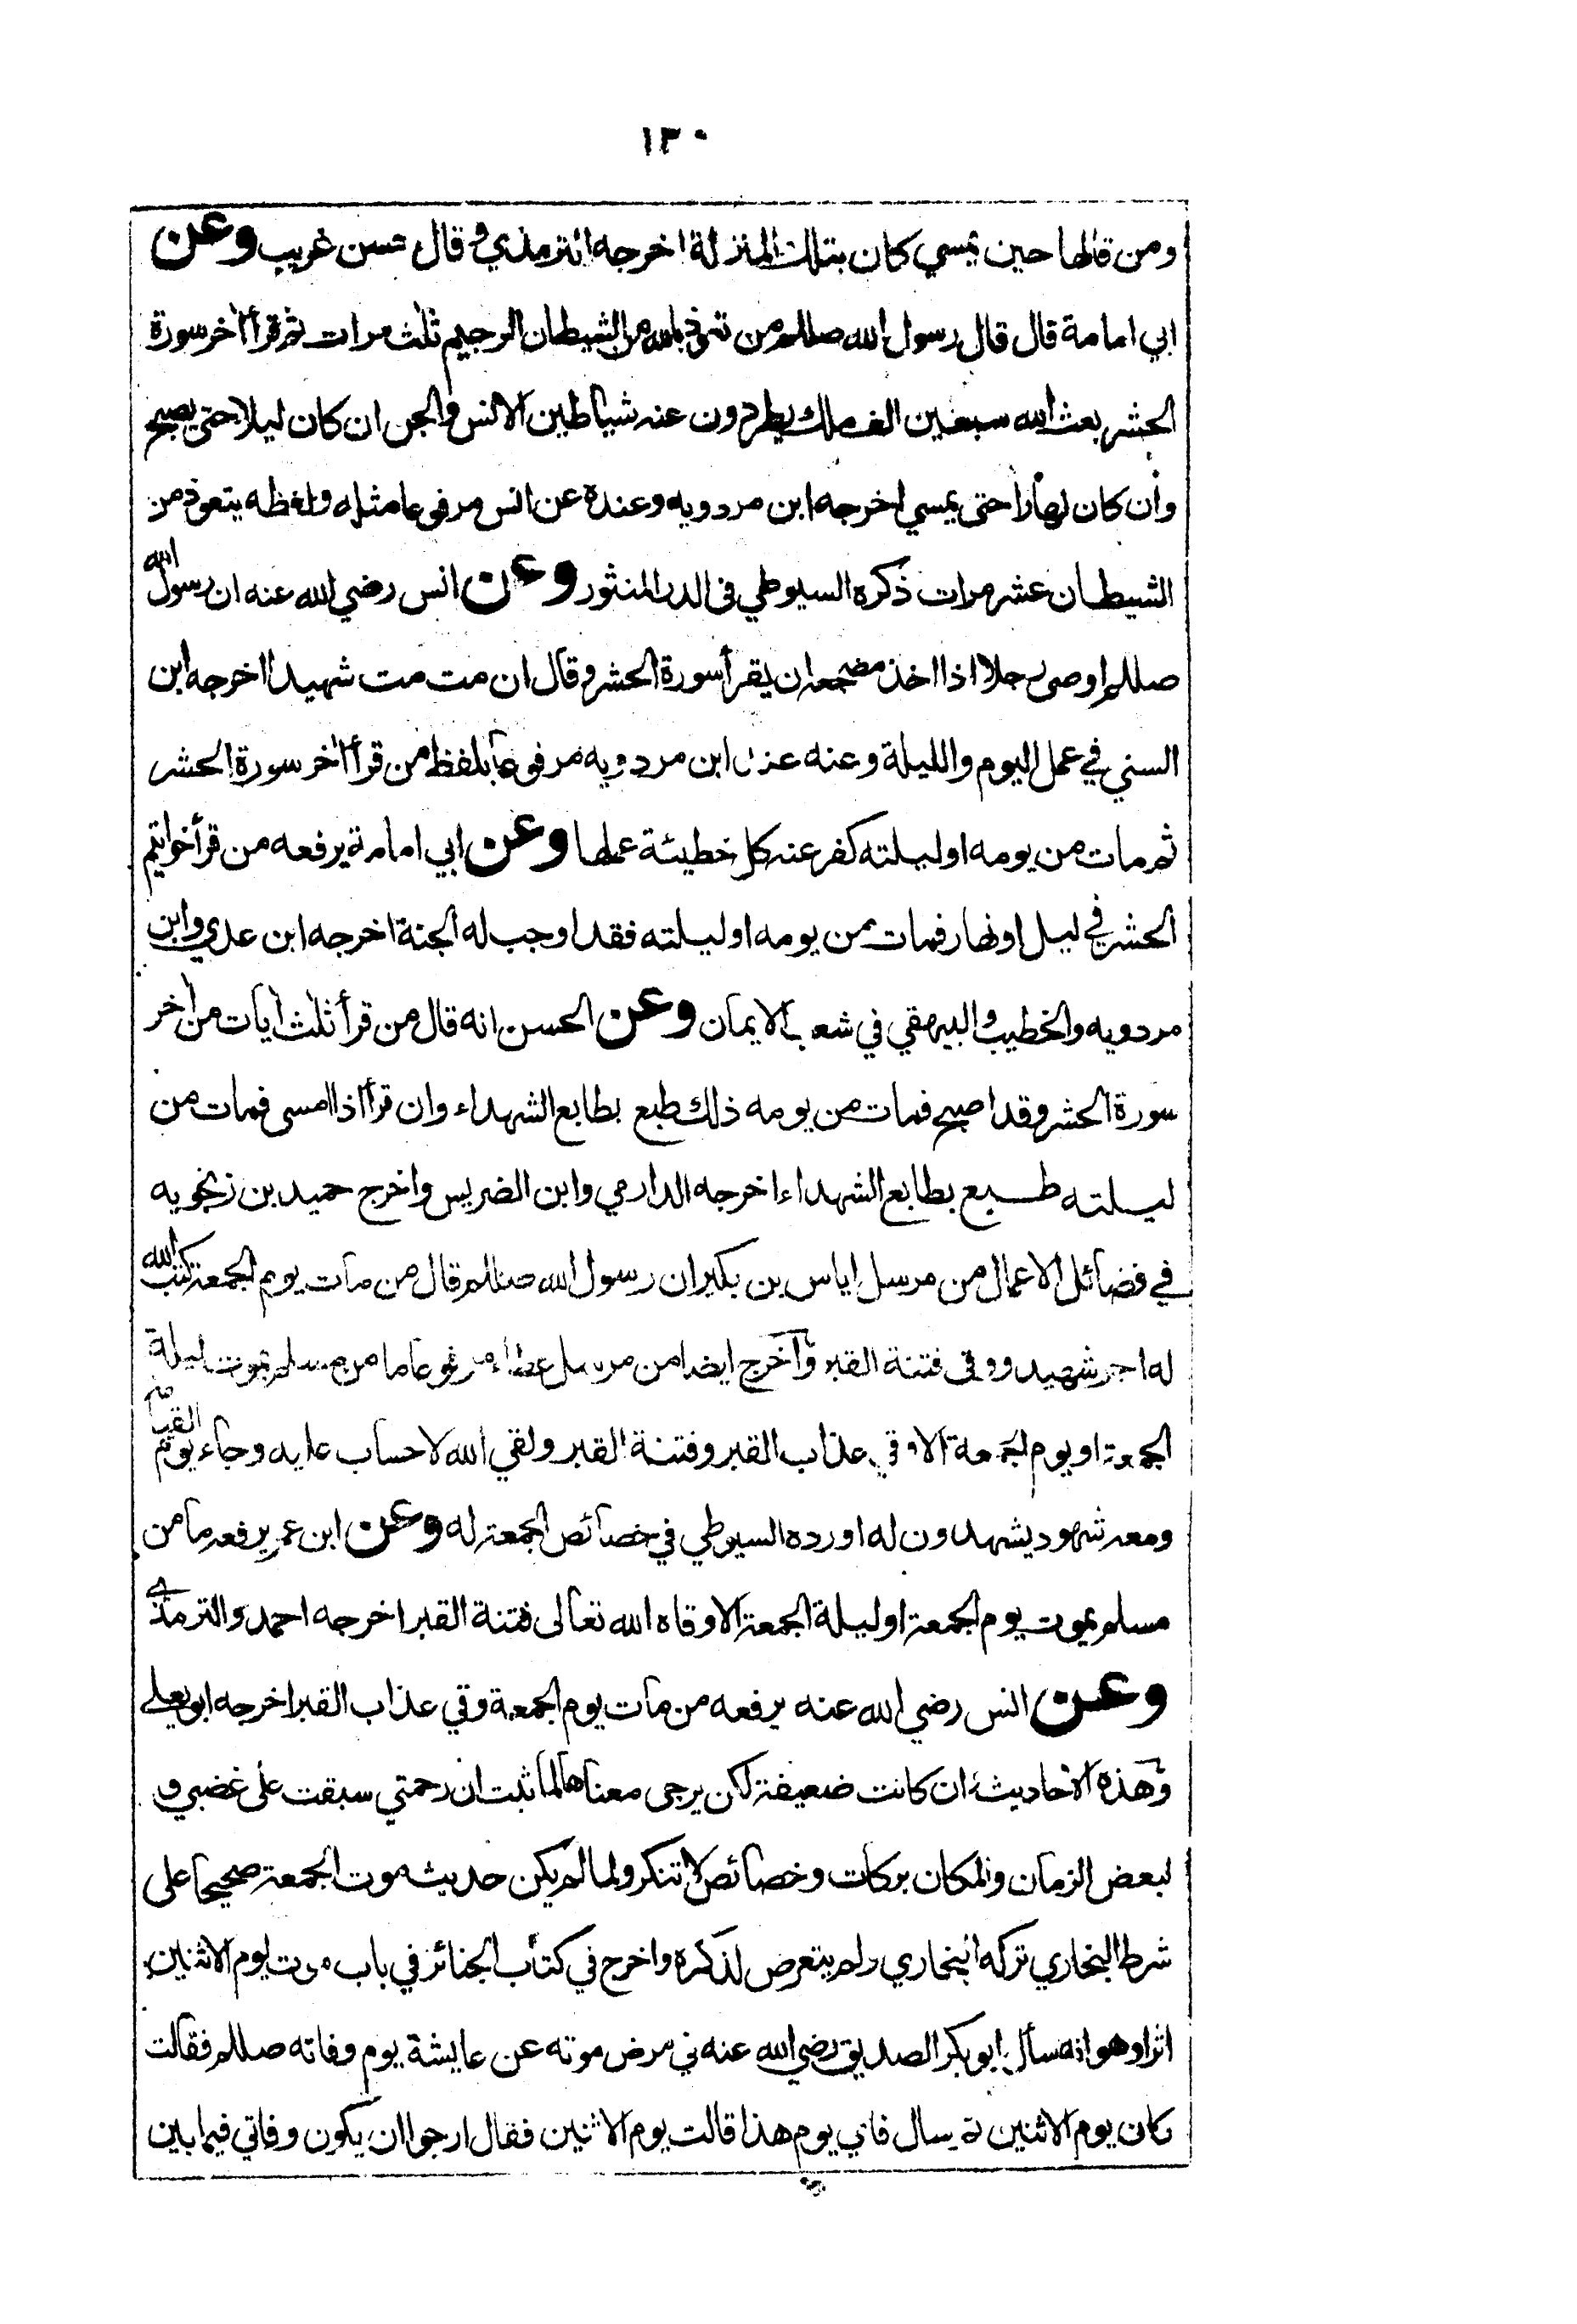 ١٣٠
ومن قالها حين يمسي كان بتلك المنزلة اخرجه الترمذي وقال حسن غريب وعن
ابي امامة قال قال رسول الله صللم من تعوذ بالله من الشيطان الرجيم ثلث مرات ثم قرأ اخر سورة
الحشر بعث الله سبعين الف ملك يطردون عنه شياطين الانس والجن ان كان ليلا حتى يصبح
وان كان نهارا حتى يمسي اخرجه ابن مردويه وعنده عن انس مرفوعا مثله ولفظه يتعوذ من
الشيطان عشر مرات ذكره السيوطي في الدر المنثور وعن انس رضي الله عنه ان رسول الله
صللم اوصى رجلا اذا اخذ مضجعه ان يقرأ سورة الحشر وقال ان مت مت شهيدا اخرجه ابن
السني في عمل اليوم والليلة وعنه عند ابن مردويه مرفوعا بلفظ من قرأ اخر سورة الحشر
ثم مات من يومه او ليلته كفر عنه كل خطيئة عملها وعن ابي امامة يرفعه من قرأ خواتيم
الحشر في ليل او نهار فمات من يومه او ليلته فقد اوجب له الجنة اخرجه ابن عدي وابن
مردويه والخطيب والبيهقي في شعب الايمان وعن الحسن انه قال من قرأ ثلث ايات من اخر
سورة الحشر وقد اصبح فمات من يومه ذلك طبع بطابع الشهداء وان قرأ اذا امسى فمات من
ليلته طبع بطابع الشهداء اخرجه الدارمي وابن الضريس واخرج حميد بن زنجويه
في فضائل الاعمال من مرسل اياس بن بكير ان رسول الله صللم قال من مات يوم الجمعة كتب الله
له اجر شهيد ووقى فتنة القبر وآخرج ايضا من مرسل عطاء مرفوعا ما من مسلم يموت ليلة
الجمعة او يوم الجمعة الا وقي عذاب القبر وفتنة القبر ولقي الله لا حساب عليه وجاء يوم القيامة
ومعه شهود يشهدون له اورده السيوطي في خصائص الجمعة له وعن ابن عمر يرفعه ما من
مسلم يموت يوم الجمعة او ليلة الجمعة الا وقاه الله تعالى فتنة القبر اخرجه احمد والترمذي
وعن انس رضي الله عنه يرفعه من مات يوم الجمعة وقي عذاب القبر اخرجه ابو يعلى
وهذه الاحاديث ان كانت ضعيفة لكن يرجى معناها لما ثبت ان رحمتي سبقت على غضبي و
لبعض الزمان والمكان بركات وخصائص لا تنكر ولما لم يكن حديث موت الجمعة صحيحا على
شرط البخاري تركه البخاري ولم يتعرض لذكره واخرج في كتاب الجنائز في باب موت يوم الاثنين
اثرا وهو انه سأل ابو بكر الصديق رضي الله عنه في مرض موته عن عايشة يوم وفاته صللم فقالت
كان يوم الاثنين ثم سال فاي يوم هذا قالت يوم الاثنين فقال ارجوا ان يكون وفاتي فيما بين